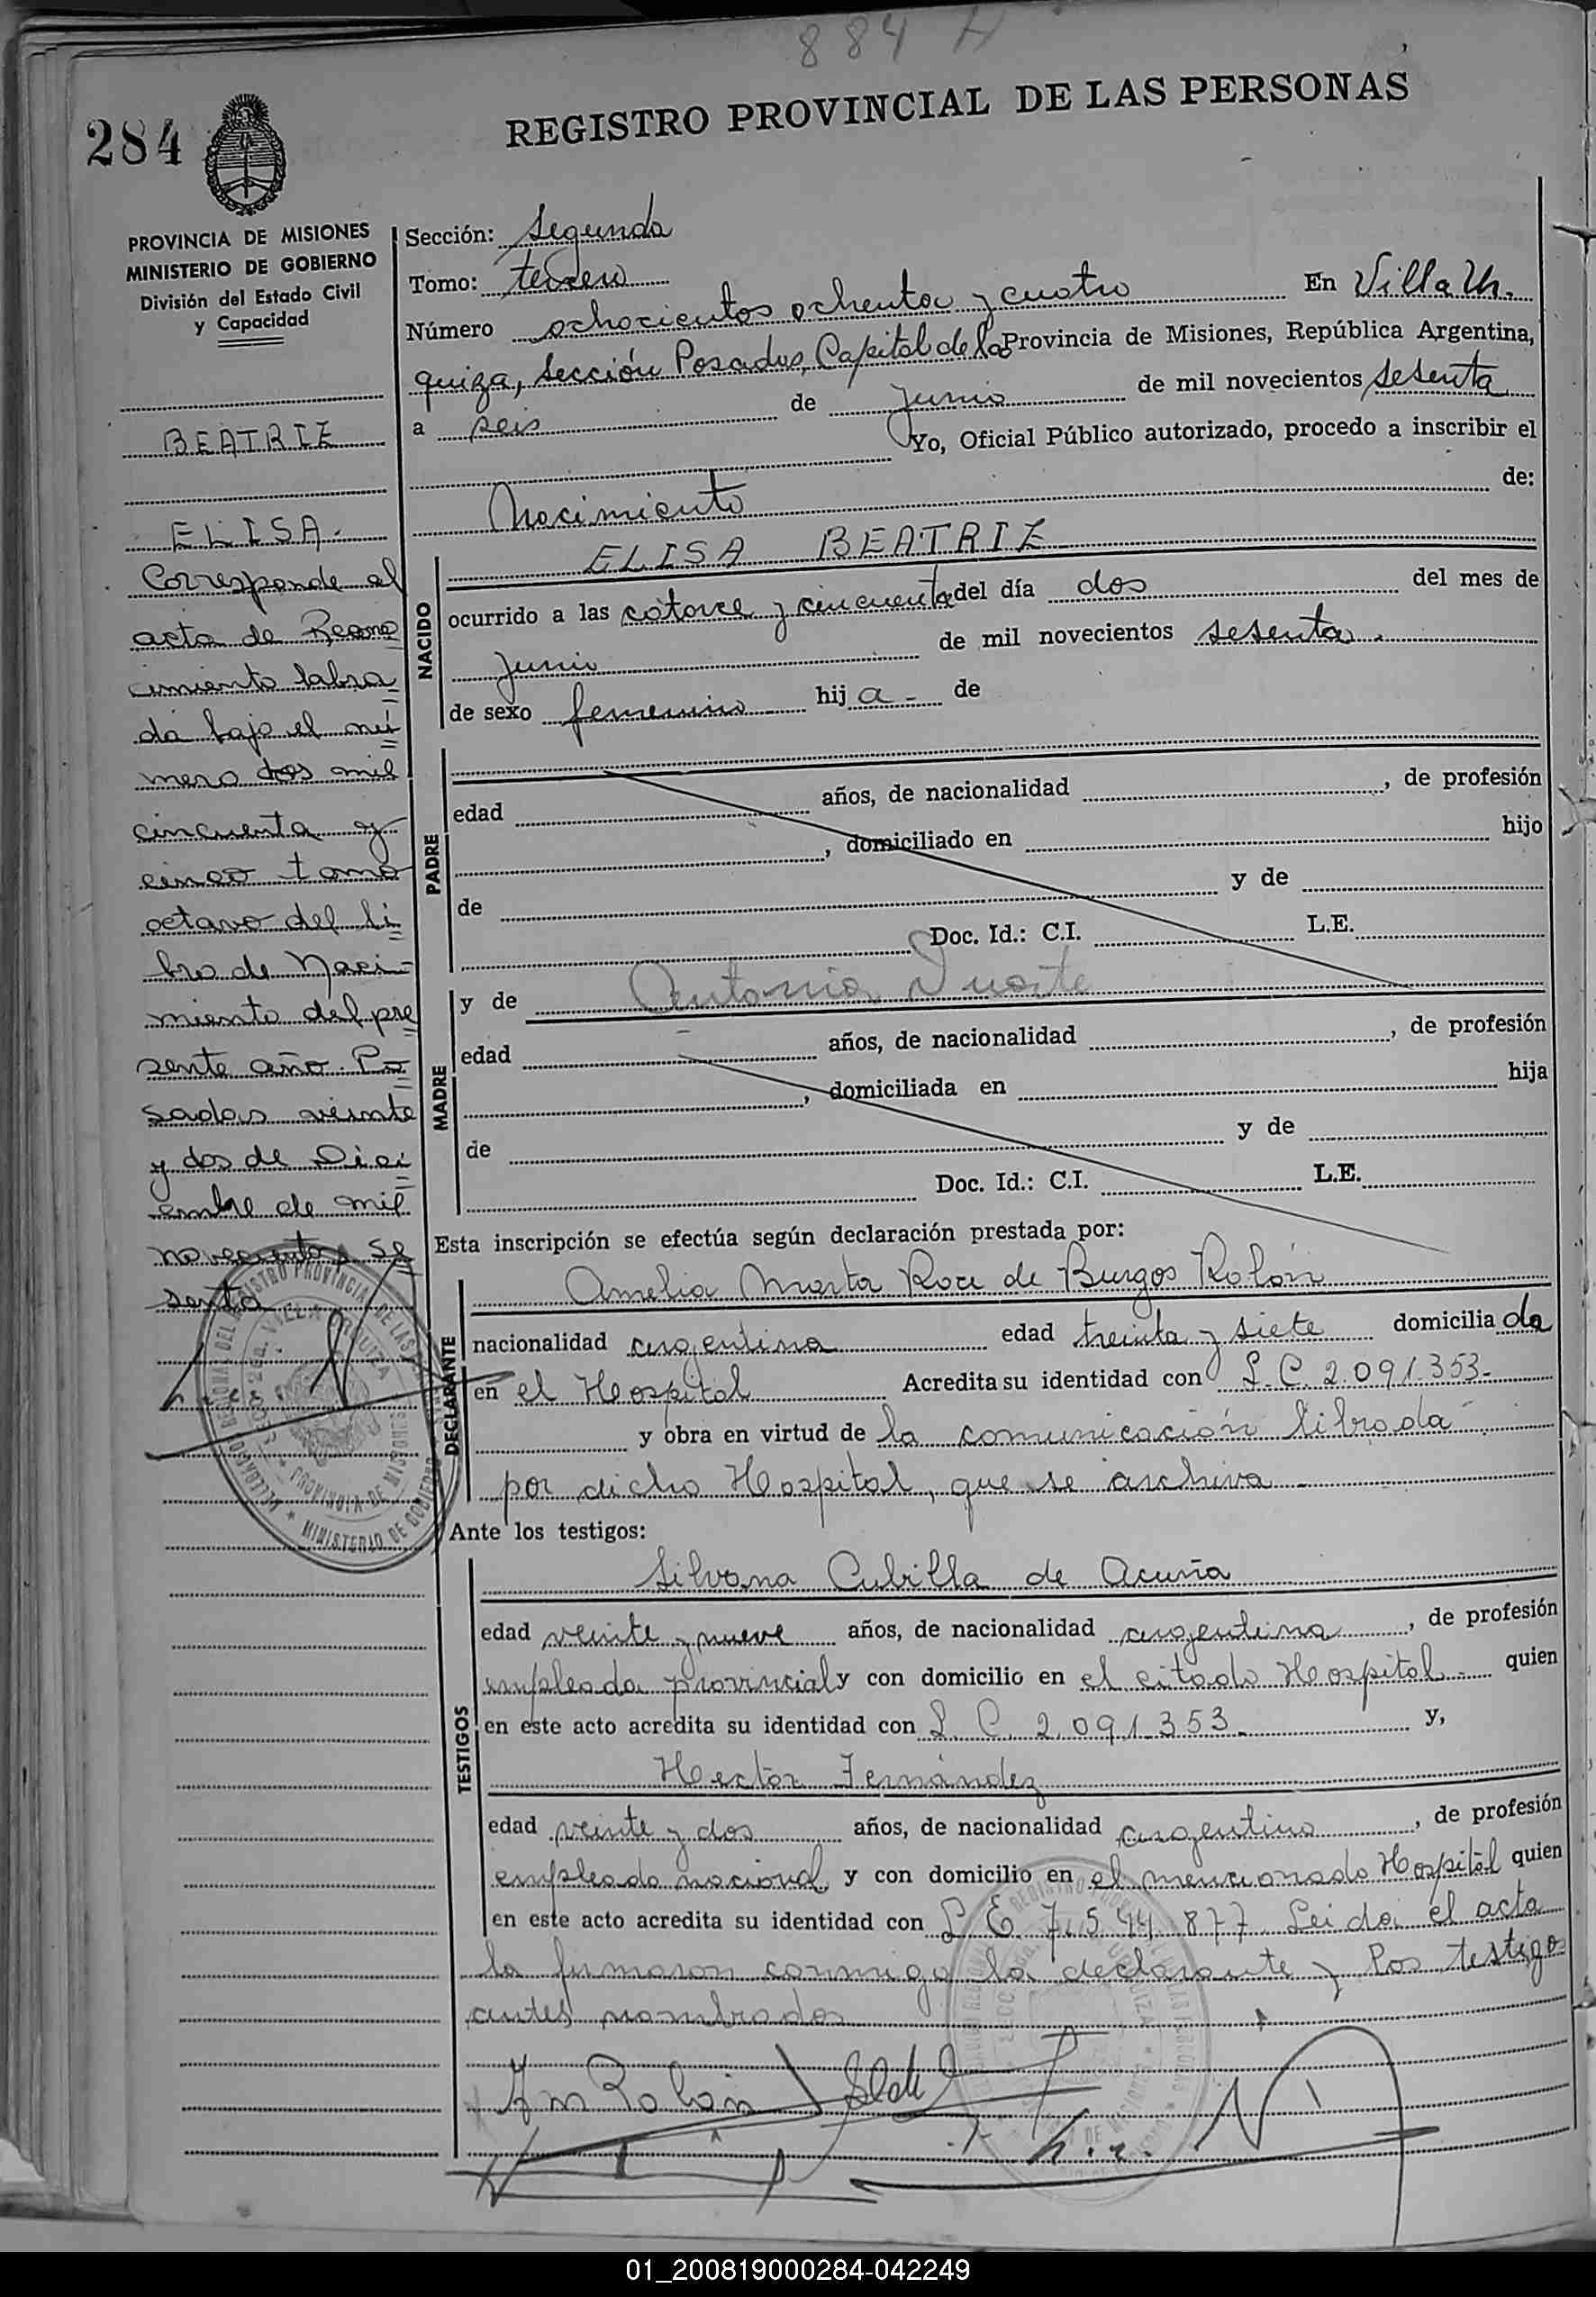 884 A
284
REGISTRO PROVINCIAL DE LAS PERSONAS
PROVINCIA DE MISIONES
MINISTERIO DE GOBIERNO
División del Estado Civil
y Capacidad
BEATRIZ
ELISA.
Corresponde al
acta de Recono
cimiento labra
da bajo el nú
mero dos mil
cincuenta y
cinco tomo
octavo del li
bro de Naci-
miento del pre
sente año. Po
sadas veinte
y dos de Dici
embre de mil
novecientos se
senta
Sección: Segunda
Tomo: tercero
Número ochocientos ochenta y cuatro En Villa Ur.
quiza, Sección Posadas, Capital de la Provincia de Misiones, República Argentina,
a seis de junio de mil novecientos sesenta
Yo, Oficial Público autorizado, procedo a inscribir el
Nacimiento de:
NACIDO
ELISA BEATRIZ
ocurrido a las catorce y cincuenta del día dos del mes de
junio de mil novecientos sesenta.
de sexo femenino hij a - de
PADRE
edad años, de nacionalidad , de profesión
, domiciliado en hijo
de y de
Doc. Id.: C.I. L.E.
MADRE
y de Antonia Duarte
edad años, de nacionalidad , de profesión
, domiciliada en hija
de y de
Doc. Id.: C.I. L.E.
Esta inscripción se efectúa según declaración prestada por:
DECLARANTE
Amelia Marta Roa de Burgos Rolón
nacionalidad argentina edad treinta y siete domicilia da
en el Hospital Acredita su identidad con L.C. 2.091.353-
y obra en virtud de la comunicación librada
por dicho Hospital, que se archiva
Ante los testigos:
TESTIGOS
Silvana Cubilla de Acuña
edad veinte y nueve años, de nacionalidad argentina, de profesión
empleada provincial y con domicilio en el citado Hospital - quien
en este acto acredita su identidad con L.C. 2.091.353- y,
Hector Fernández
edad veinte y dos años, de nacionalidad argentino, de profesión
empleado nacional y con domicilio en el mencionado Hospital quien
en este acto acredita su identidad con L.E. 7.544.877. Leida el acta
la firmaron conmigo la declarante y los testigo
antes nombrados
01_200819000284-042249